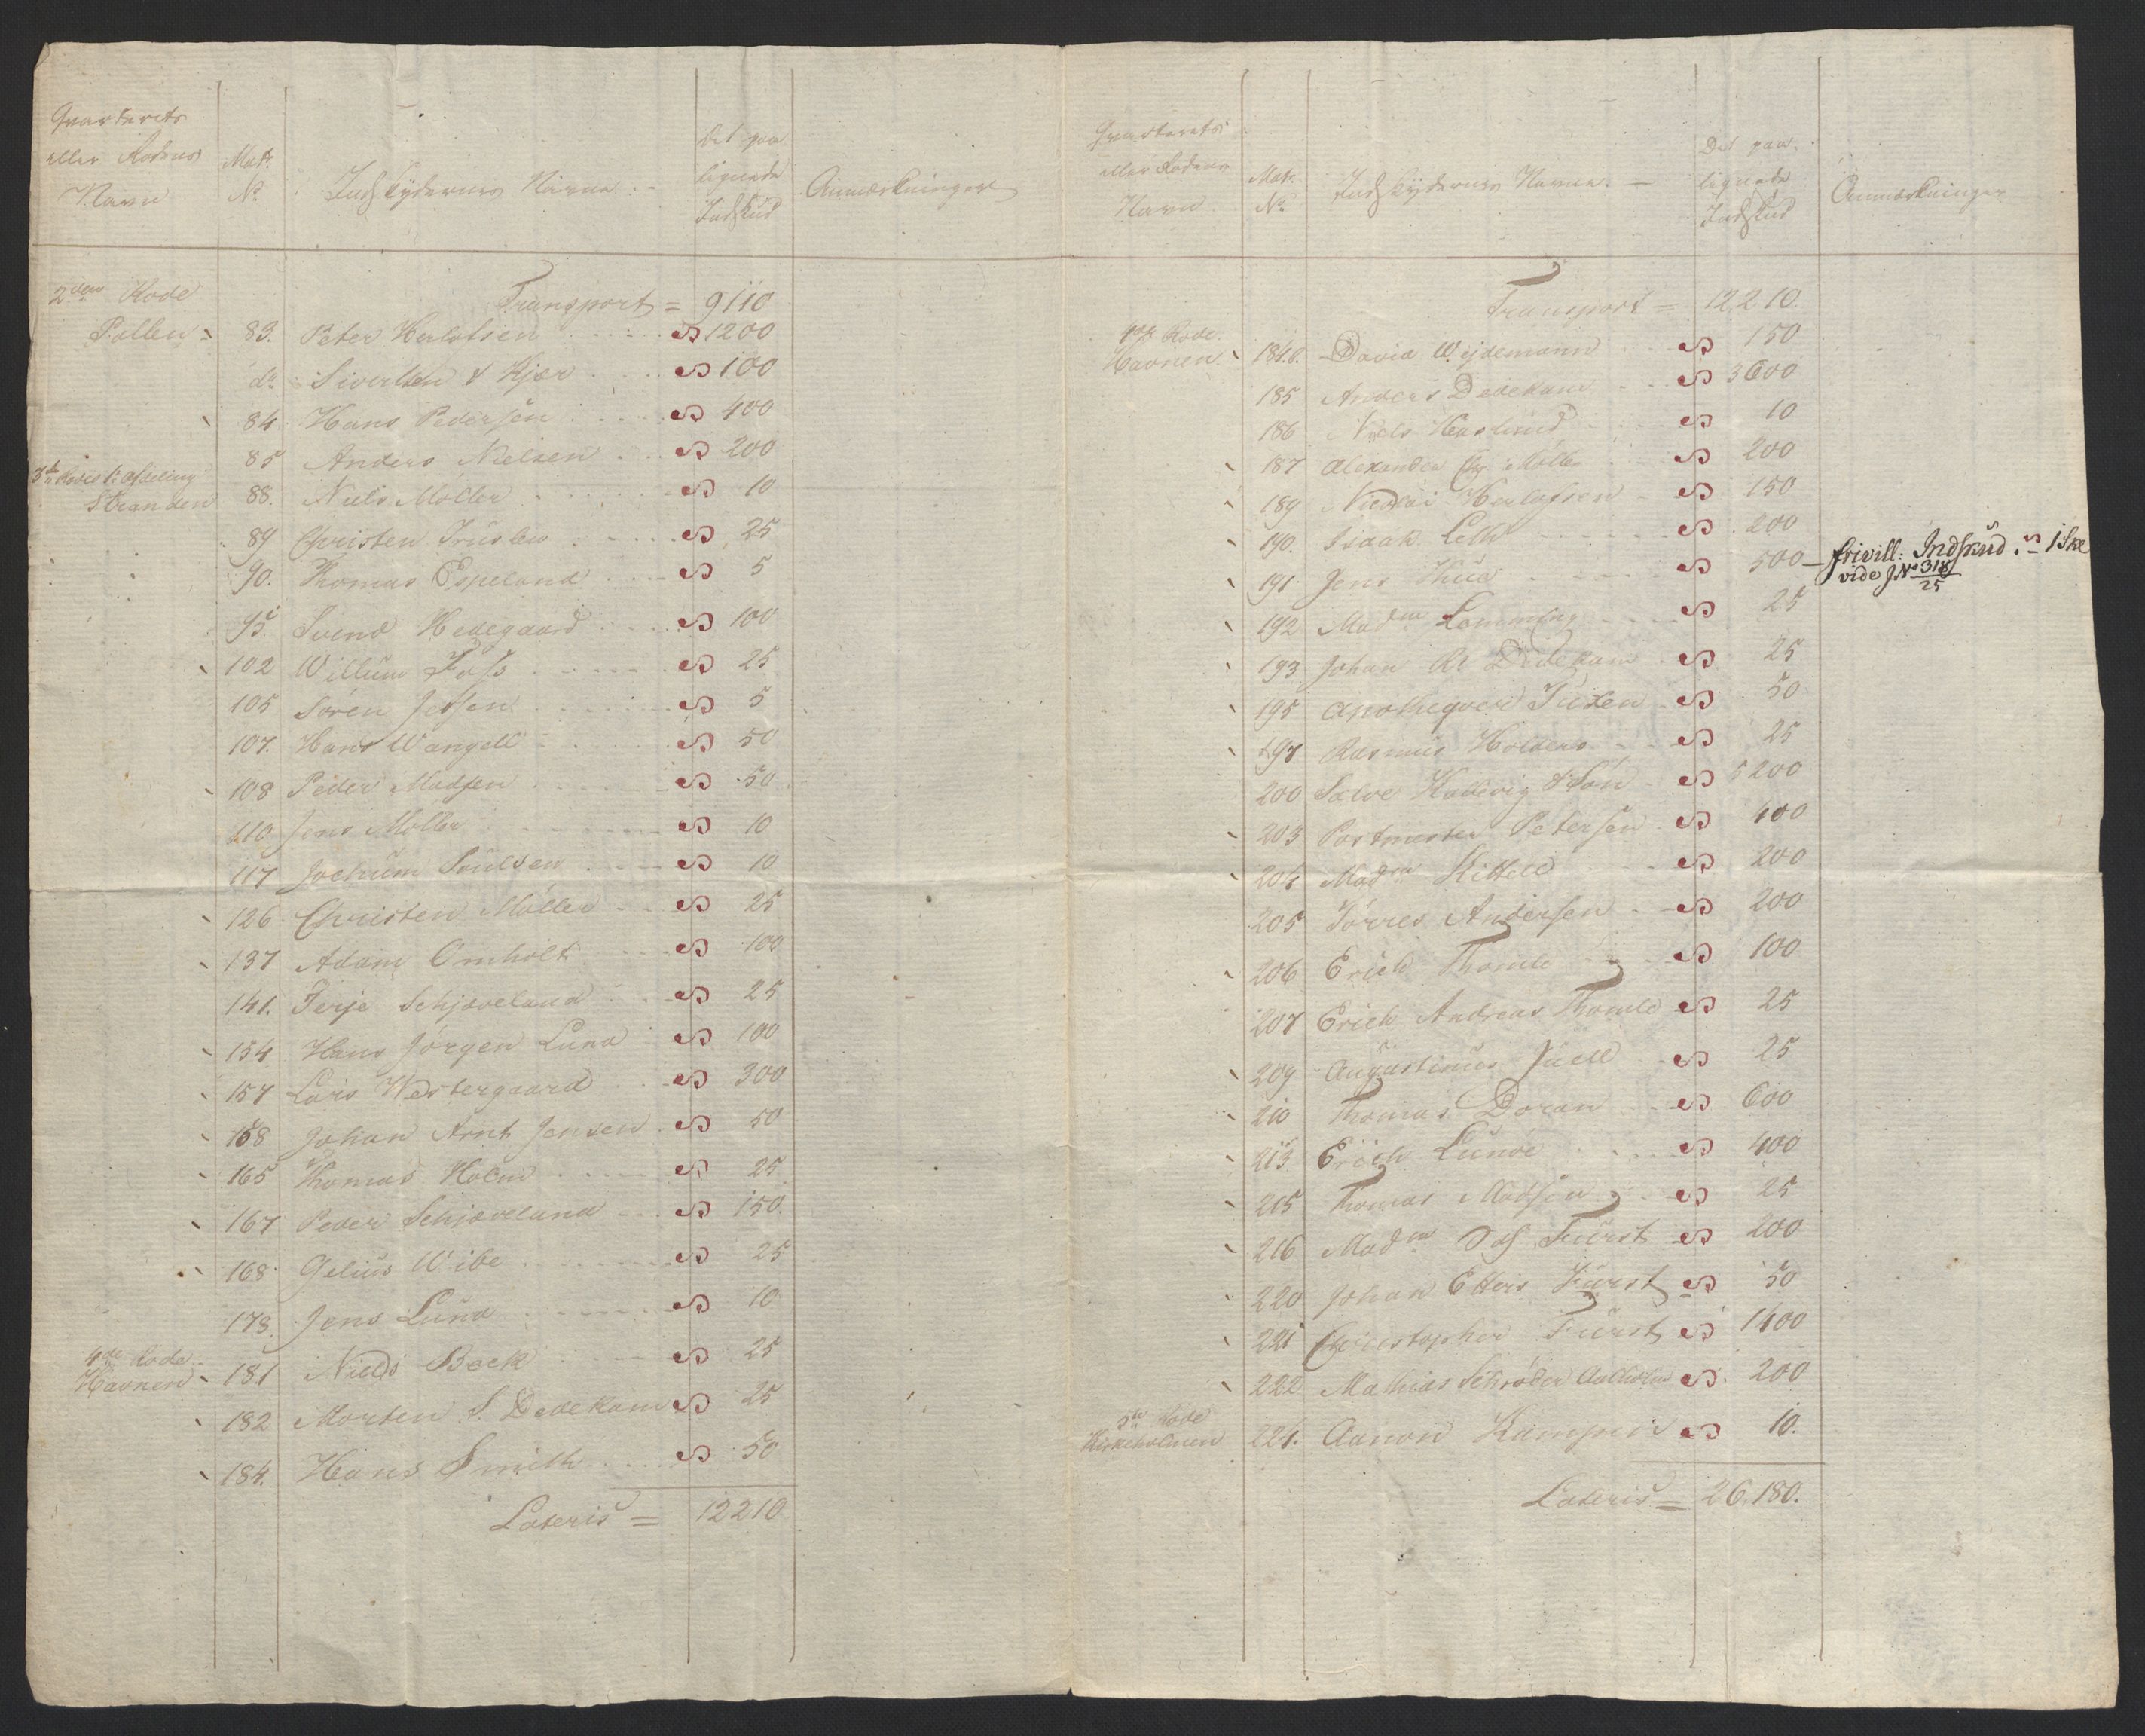 Qvarterets
eller Rodens
Navn
Matr.
No
Indskydernes Navne.
Det paa
lignede
Indskud
Anmærkninger
2den Rode Transport = 9110
Pollen 83. Peter Herlofsen 1200
do Sivertsen & Kjær 100
84 Hans Pedersen 400
85 Anders Nielsen 200
3de Rodes 1te Afdeling
Stranden 88. Niels Møller 10
89 Christen Truslew 25
90. Thomas Espeland 5
95. Svend Hedegaard 100
102 Willum Foss 25
105 Søren Jessen 5
107. Hans Wangell 50
108 Peder Madsen 50
110 Jens Møller 10
117 Jochum Poulsen 10
126 Christen Møller 25
137 Adam Omholt 100
141. Terje Schjøveland 25
154 Hans Jørgen Lund 100
157 Lars Westergaard 300
158 Johan Arnt Jensen 50
165 Thomas Holm 25
167 Peder Schjøveland 150.
168 Gelius Wibe 25
178. Jens Lund 10
4de Rode
Havnen 181 Niels Beck 25
182 Morten S. Dedekam 25
184. Hans Smith 50
Lateris = 12210
Qvarterets
eller Rodens
Navn
Matr.
No
Indskydernes Navne.
Det paa
lignede
Indskud
Anmærkninger
Transport = 12210.
4de Rode.
Havnen 184.b. David Weydemann 150
185 Anders Dedekam 3600
186 Niels Haslund 10
187 Alexander Chr Møller 200
189 Nicolai Herlofsen 150
190. Isaak Leth 200
191 Jens Thue 500 — frivill: Indskud 1 Ske
vide J No 318/25
192 Madm Lemming 25
193 Johan Chr Dedekam 25
195 Apotheqver Tuxen 50
197 Rasmus Holders 25
200 Salve Kallevig & Søn 5200
203 Postmester Petersen 400
204 Madm Kittell 200
205 Tørres Andersen 200
206 Erich Thomle 100
207 Erich Andreas Thomle 25
209 Augustinus Juell 25
210 Thomas Doran 600
213. Erich Lunde 400
215 Thomas Madsen 25
216 Madm Fürst 200
220 Johan Ellers Fürst 50
221 Christopher Fürst 1400
222 Mathias Schrøder Aalholm 200
5te Rode
Kirkeholmen 224. Aanon 10.
Lateris = 26,180.